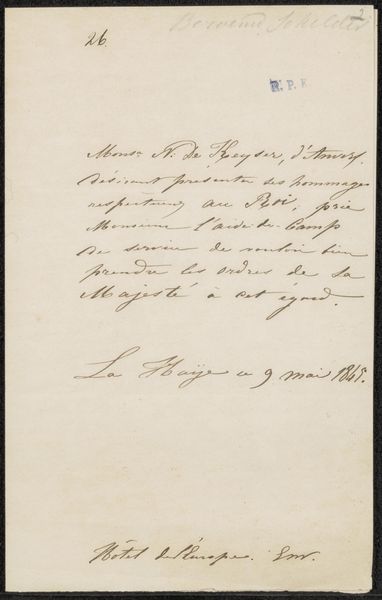 26.
2
Beroemd Schilder
R. P. K.
Monsr N: De Keyser, d'Anvers,
désirant présenter ses hommages
respectueux au Roi, prie
Monsieur l'aide de Camp
de service de vouloir bien
prendre les ordres de Sa
Majesté à cet égard.
La Haÿe ce 9 mai 1845.
Hôtel de l'Europe.